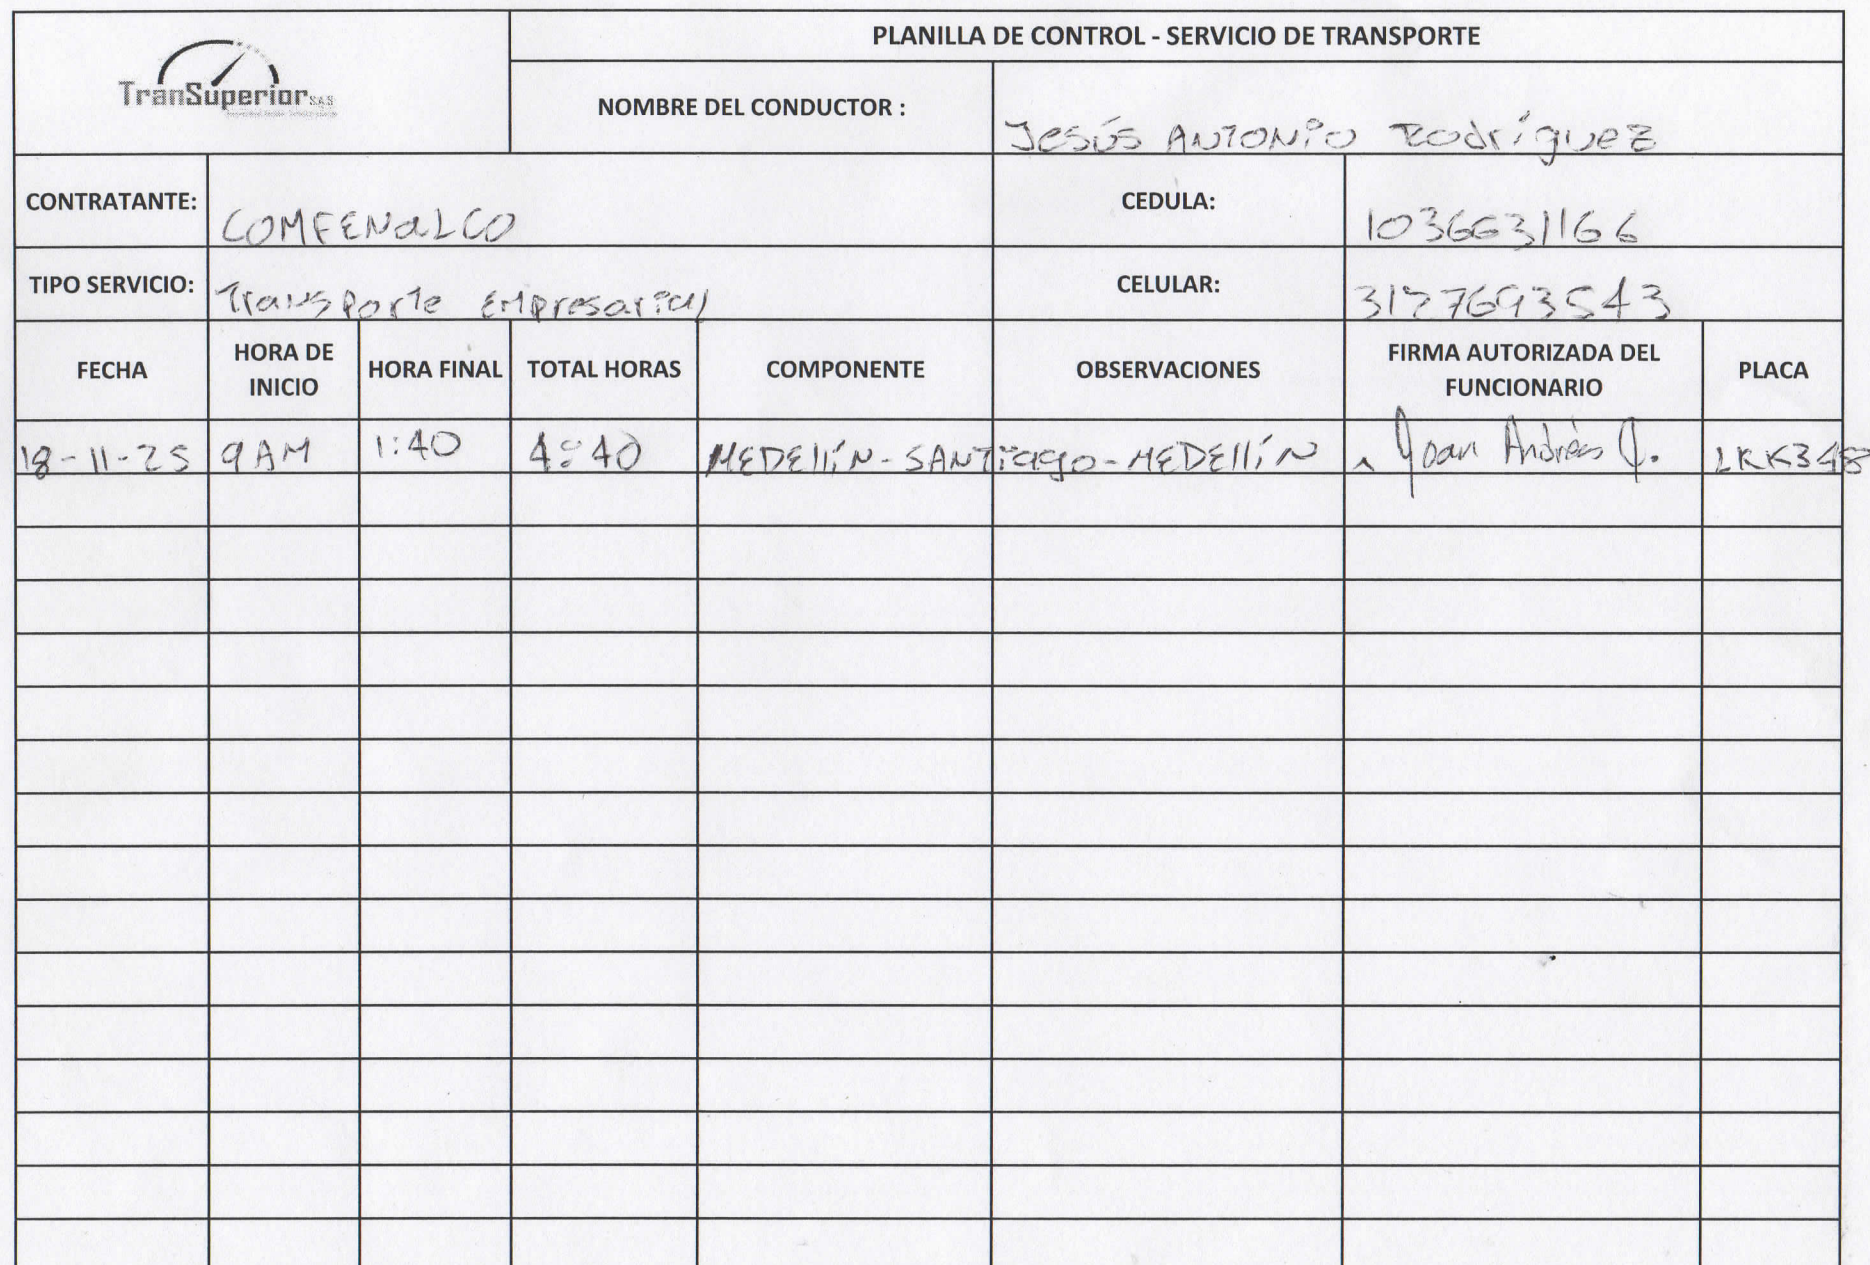 TranSuperior SAS
PLANILLA DE CONTROL - SERVICIO DE TRANSPORTE
NOMBRE DEL CONDUCTOR : Jesús ANTONIO Rodríguez
CONTRATANTE: COMFENALCO CEDULA: 1036631166
TIPO SERVICIO: Transporte Empresarial CELULAR: 3127693543
FECHA HORA DE INICIO HORA FINAL TOTAL HORAS COMPONENTE OBSERVACIONES FIRMA AUTORIZADA DEL FUNCIONARIO PLACA
18-11-25 9AM 1:40 4:40 MEDEllíN-SANTiago-MEDEllíN Joan Andrés Q. LKK348